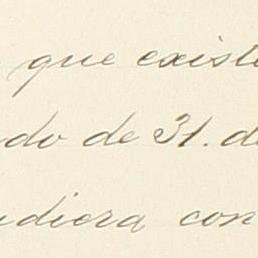 que existe
do de 31. de
diera con